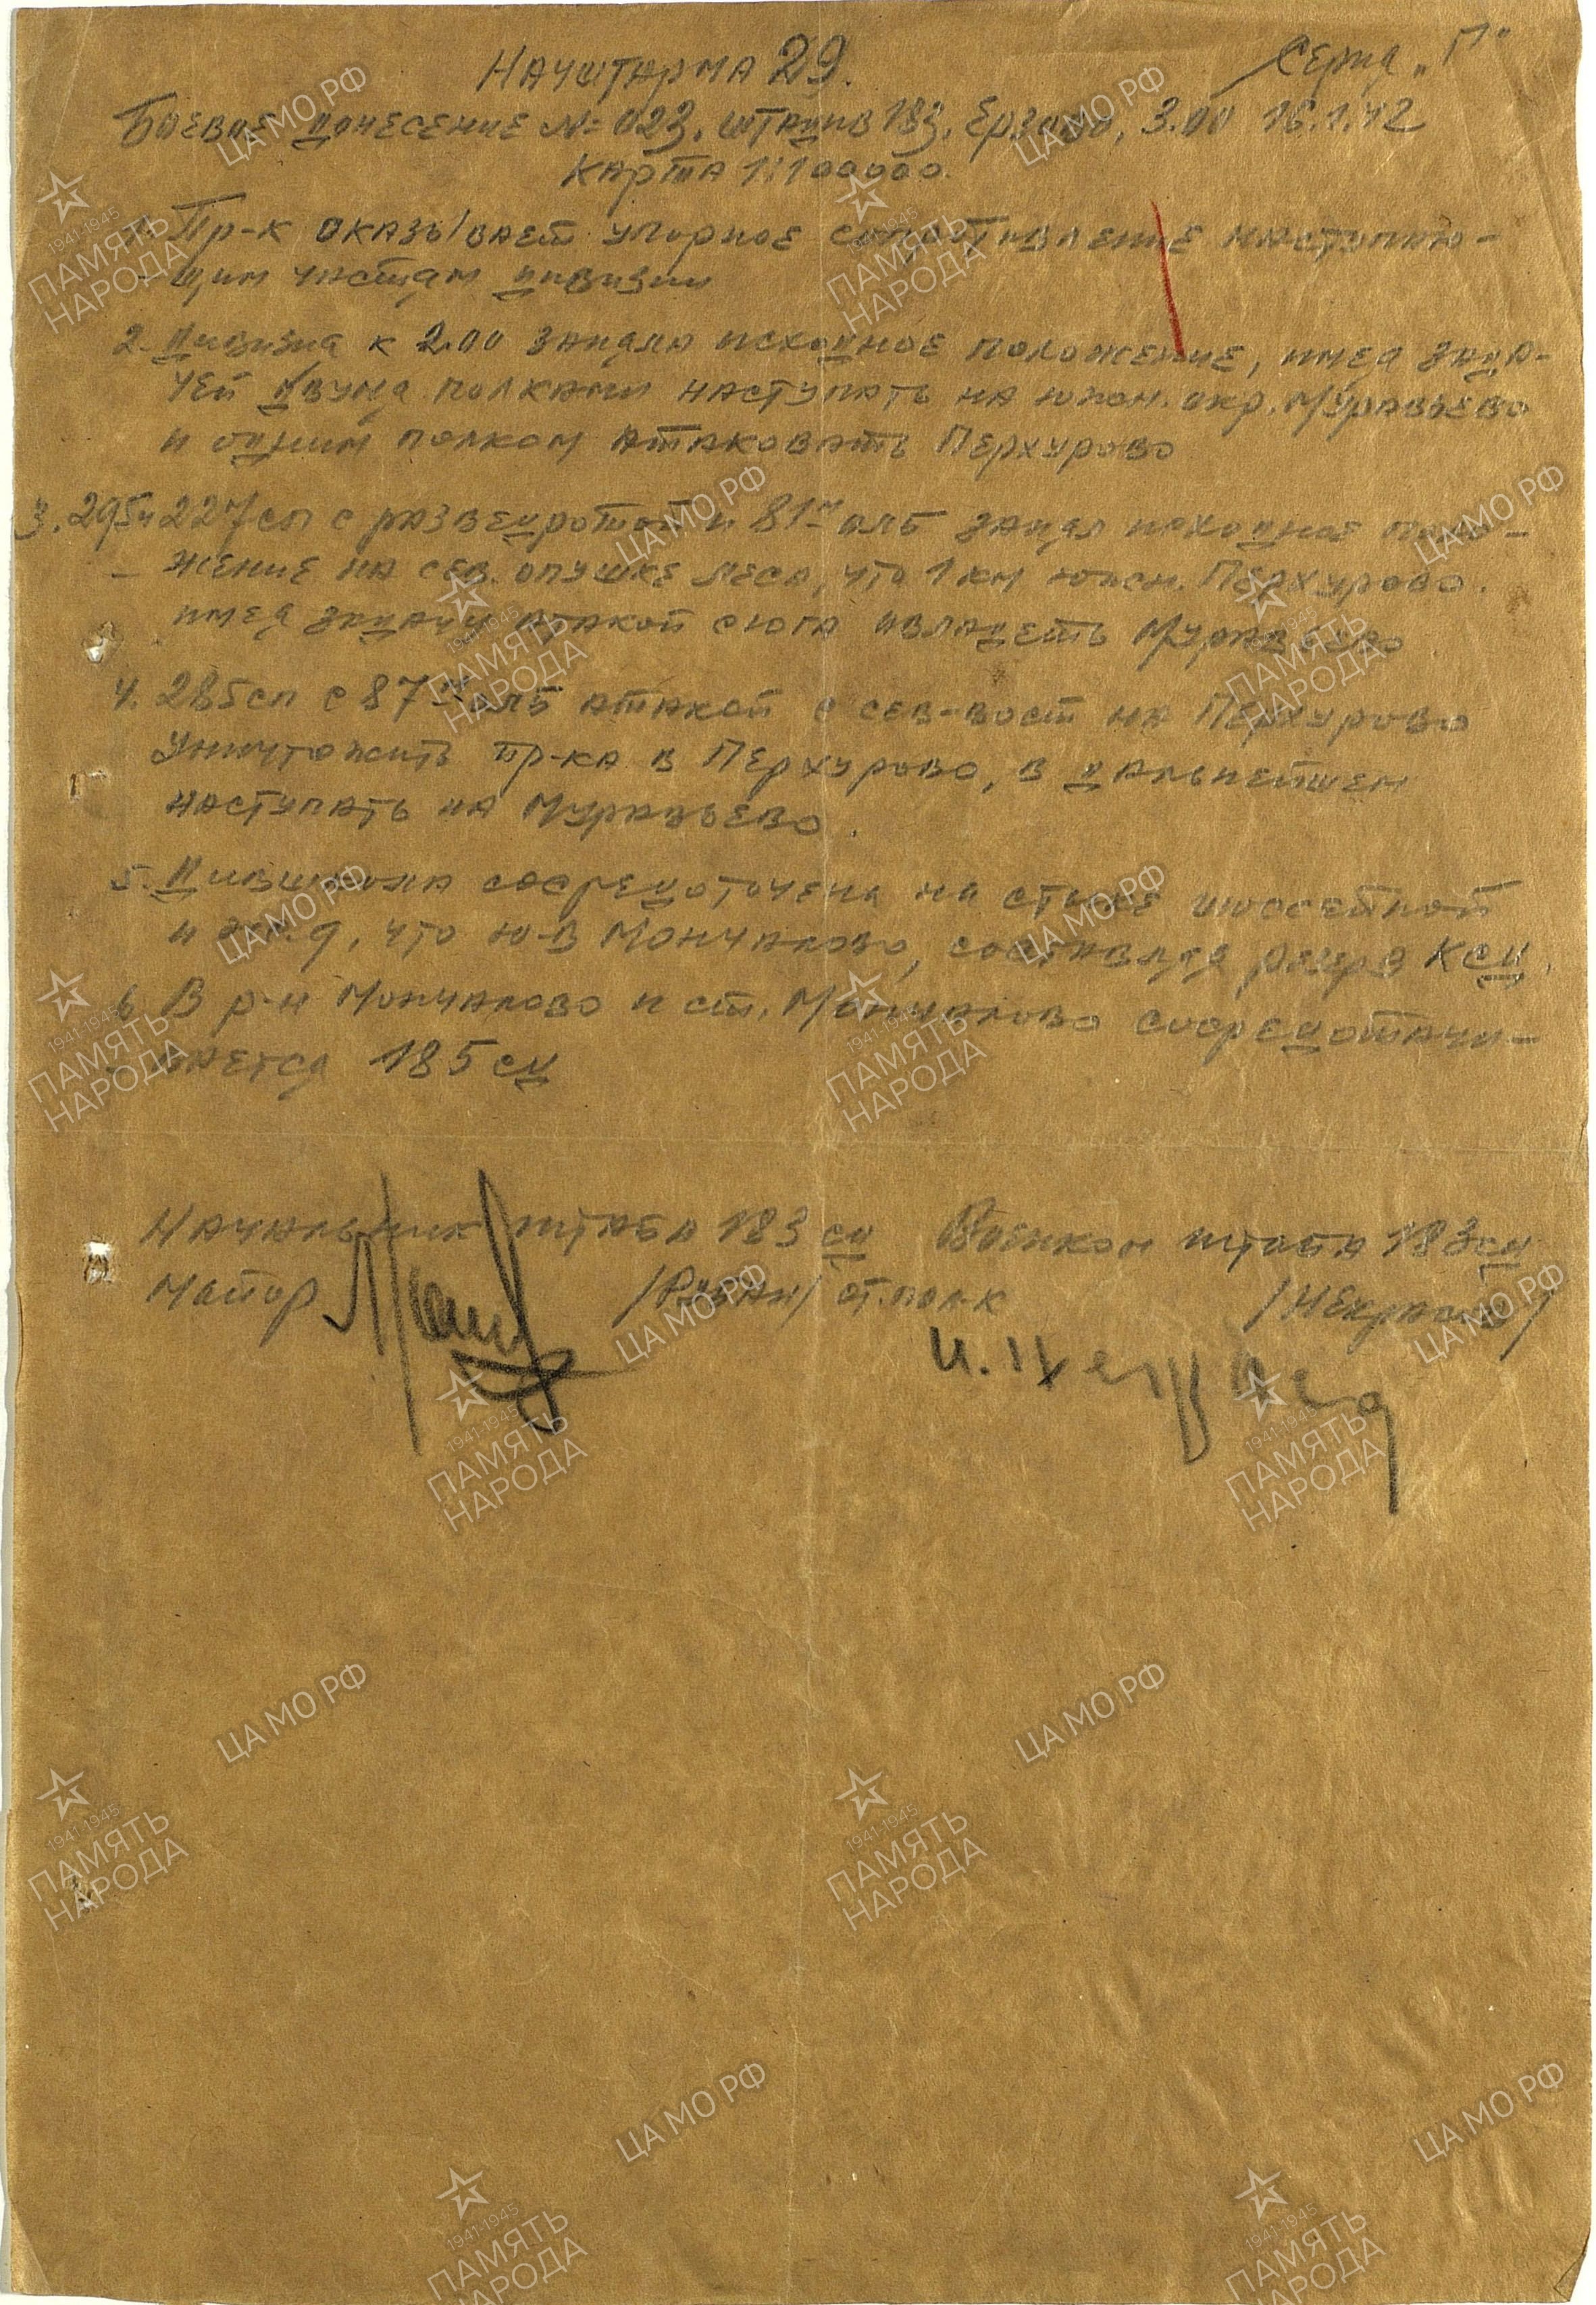 Серия „Г"
Начштарма 29.
Боевое донесение № 023. штадив 183. Ерзово, 3.00 16.1.42
Карта 1:100000.
1. Пр-к оказывает упорное сопротивление наступаю-
щим частям дивизии
2. Дивизия к 2.00 заняла исходное положение, имея зада-
чей двумя полками наступать на южн. окр. Муравьево
и одним полком атаковать Перхурово
3. 295 и 227 сп с разведротой и 81-й олб занял исходное поло-
жение на сев. опушке леса, что 1 км южн. Перхурово.
имея задачу атакой с юга овладеть Муравьево
4. 285 сп с 87-й олб атакой с сев-вост на Перхурово
уничтожить пр-ка в Перхурово, в дальнейшем
наступать на Муравьево.
5. Дившкола сосредоточена на стыке шоссейной
и ж.д, что ю-в Мончалово, составляя резерв КСД.
6. В р-н Мончалово и ст. Мончалово сосредотачи-
вается 185 сд
Начальник штаба 183 сд Военком штаба 183 сд
Майор /Рубан/ ст. пол-к /Некрасов/